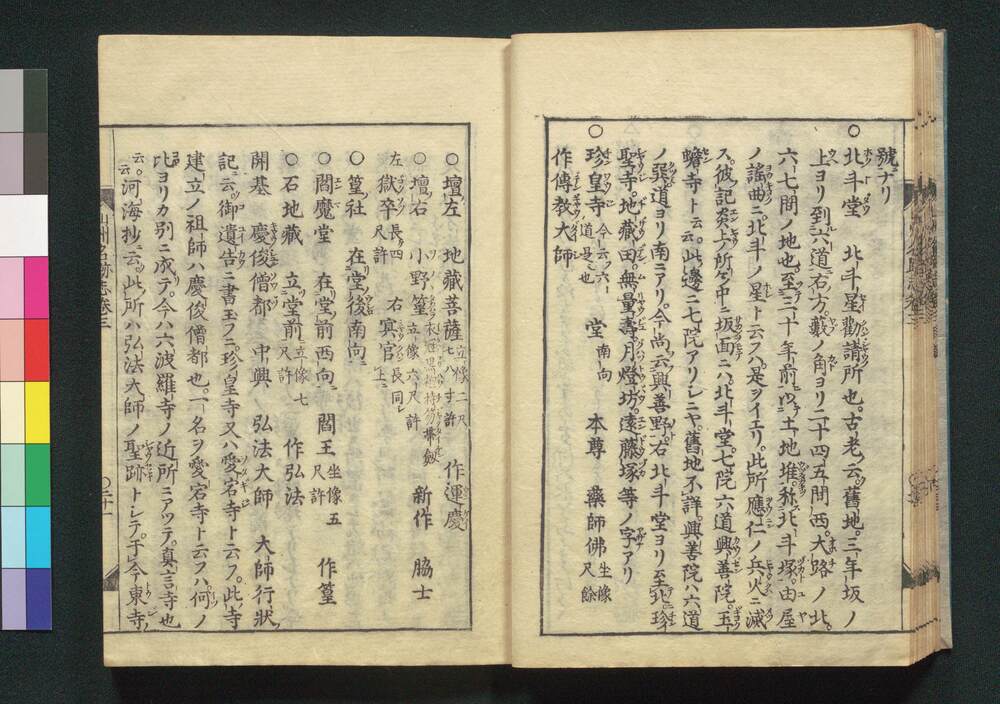 號ナリ
○北斗堂 北斗星勸請所也。古老云。舊地。三年坂ノ
上ヨリ到六道右方。藪ノ角ヨリ二十四五間西。大路ノ北。
六七間ノ地也。至三十年前土地堆。称北斗塚。田屋
ノ謡曲ニ。北斗ノ星ト云フハ。是ヲイエリ。此所應仁ノ兵火ニ滅
ス。彼記炎上所々中ニ坂面ニハ。北斗堂。七院六道興善院。玉
蟾寺ト云云。此邊ニ七院アリシニヤ。舊地不詳。興善院ハ六道
ノ巽道ヨリ南ニアリ。今尚云興善野。右北斗堂ヨリ至北珍
聖寺。地藏田。無量壽。月燈坊。遠藤塚等ノ字アリ
○珍皇寺 今云六道是也 堂 南向 本尊 藥師佛 坐像尺餘
作傳教大師
○壇左 地藏菩薩 立像二尺七八寸許 作運慶
○壇右 小野篁 立像六尺許 新作 脇士
左獄卒 長四尺許 右冥官 長同上
○篁社 在堂後南向
○閻魔堂 在堂前西向 閻王 坐像五尺許 作篁
○石地藏 立堂前 立像七尺許 作弘法
開基 慶俊僧都 中興 弘法大師 大師行狀
記云。御遺告ニ書玉フニ。珍皇寺又ハ愛宕寺ト云フ。此寺
建立ノ祖師ハ慶俊僧都也。一名ヲ愛宕寺ト云フハ。何ノ
比ヨリカ別ニ成テ。今ハ六波羅寺ノ近所ニアツテ。真言寺也
云云。河海抄ニ云。此所ハ弘法大師ノ聖跡トシテ。于今東寺
山州名跡志卷三
○二十一